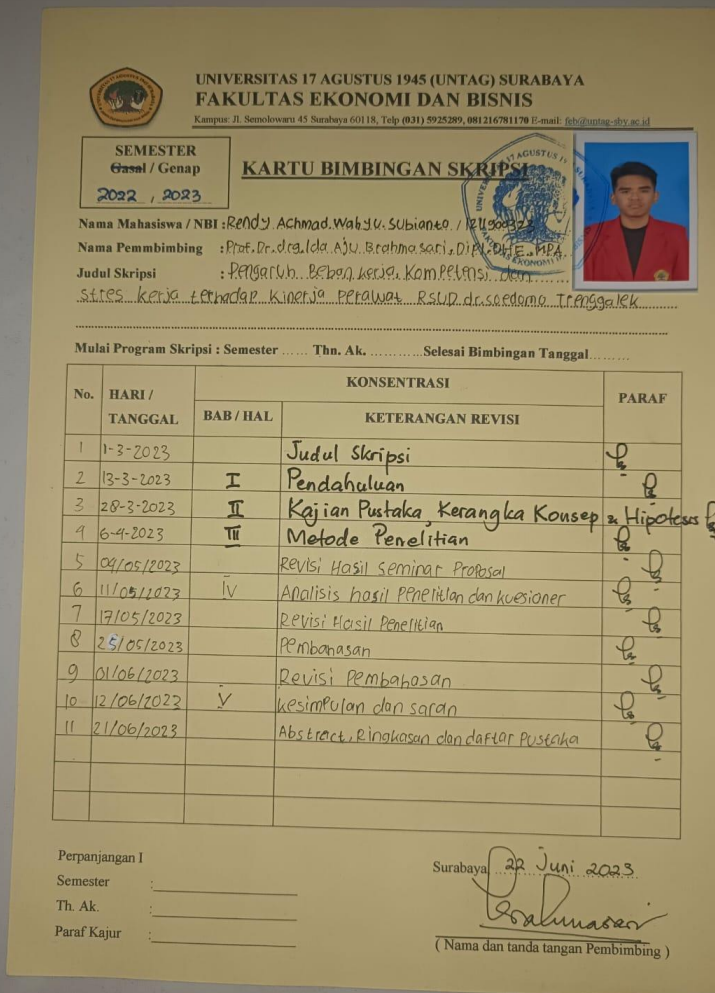 UNIVERSITAS 17 AGUSTUS 1945 (UNTAG) SURABAYA
FAKULTAS EKONOMI DAN BISNIS
Kampus: Jl. Semolowaru 45 Surabaya 60118, Telp (031) 5925289, 081216781170 E-mail: feb@untag-sby.ac.id
SEMESTER
Gasal / Genap
2022 , 2023
KARTU BIMBINGAN SKRIPSI
Nama Mahasiswa / NBI : Rendy Achmad. Wahyu. Subianto /
Nama Pemmbimbing : Prof. Dr. drg. Ida Aju Brahma sari, Dipl. DHE, MPA
Judul Skripsi : Pengaruh Beban kerja, Kompetensi dan
stres kerja terhadap Kinerja perawat RSUD dr. soedomo Trenggalek
Mulai Program Skripsi : Semester ...... Thn. Ak. ............Selesai Bimbingan Tanggal.........
No. HARI / TANGGAL KONSENTRASI PARAF
BAB / HAL KETERANGAN REVISI
1 1-3-2023 Judul Skripsi
2 13-3-2023 I Pendahuluan
3 28-3-2023 II Kajian Pustaka, Kerangka Konsep & Hipotesis
4 6-4-2023 III Metode Penelitian
5 09/05/2023 Revisi Hasil seminar Proposal
6 11/05/2023 IV Analisis hasil Penelitian dan kuesioner
7 17/05/2023 Revisi Hasil Penelitian
8 25/05/2023 Pembahasan
9 01/06/2023 Revisi Pembahasan
10 12/06/2023 V kesimpulan dan saran
11 21/06/2023 Abstract, Ringkasan dan daftar Pustaka
Perpanjangan I
Semester :
Th. Ak. :
Paraf Kajur :
Surabaya, 22 Juni 2023
( Nama dan tanda tangan Pembimbing )